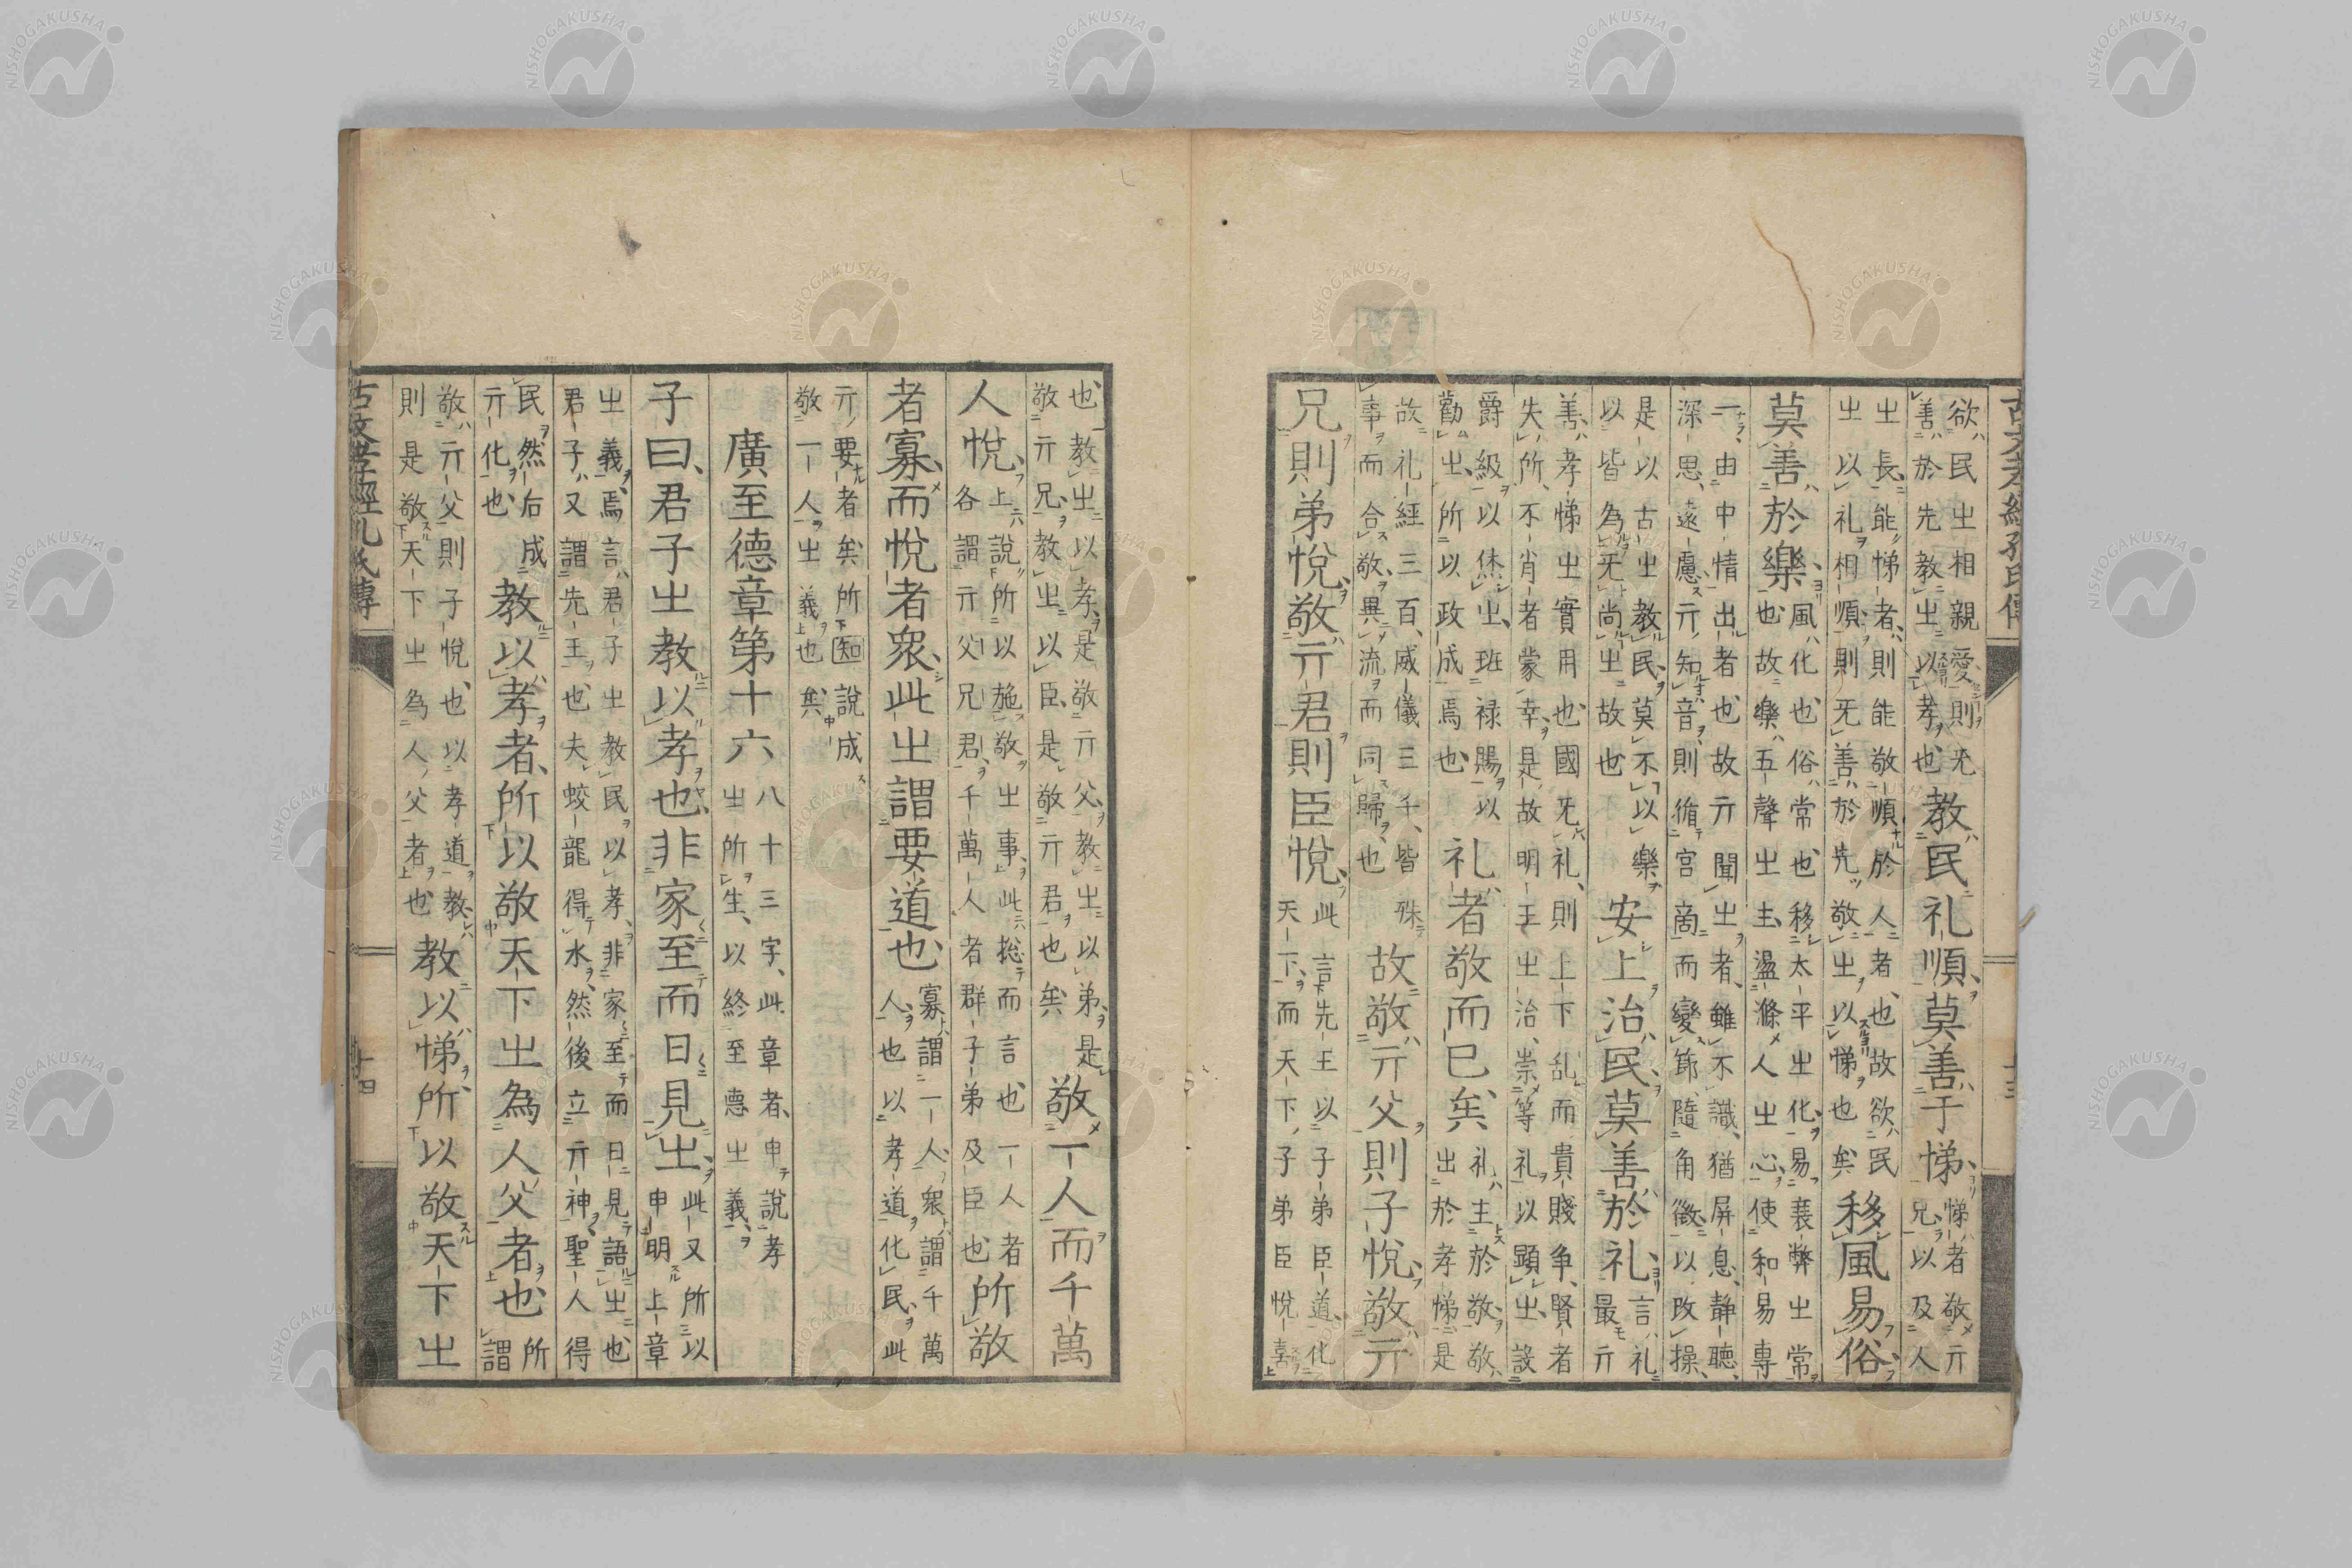 古文孝經孔氏傳 十三
欲民㞢相親愛則无
善於先教㞢以孝也
教民礼順莫善于悌
悌者敬亓
兄以及人
㞢長能悌者則能敬順於人者也故欲民
㞢以礼相順則无善於先敬㞢以悌也矣
移風易俗
莫善於樂
風化也俗常也移太平㞢化易衰弊㞢常
也故樂五聲㞢主盪滌人㞢心使和易專
一由中情出者也故亓聞㞢者雖不識猶屏息静聽
深思遠慮亓知音則循宫商而變節隨角徵以改操
是以古㞢教民莫不以樂
以皆為无尚㞢故也
安上治民莫善於礼
言礼
最亓
善孝悌㞢實用也國无礼則上下乱而貴賤争賢者
失所不肖者蒙幸是故明王㞢治崇等礼以顕㞢設
爵級以休㞢班禄賜以
勸㞢所以政成焉也
礼者敬而已矣
礼主於敬敬
出於孝悌是
故礼經三百威儀三千皆殊
事而合敬異流而同歸也
故敬亓父則子悦敬亓
兄則弟悦敬亓君則臣悦
此言先王以子弟臣道化
天下而天下子弟臣悦喜
也教㞢以孝是敬亓父教㞢以弟是
敬亓兄教㞢以臣是敬亓君也矣
敬一人而千萬
人悦
上説所以施敬㞢事此揔而言也一人者
各謂亓父兄君千萬人者群子弟及臣也
所敬
者寡而悦者衆此㞢謂要道也
寡謂一人衆謂千萬
人也以孝道化民此
亓要者矣所知說成
敬一人㞢義也矣
廣至德章第十六
八十三字此章者申說孝
㞢所生以終至悳㞢義
子曰君子㞢教以孝也非家至而日見㞢
此又所以
申明上章
㞢義焉言君子㞢教民以孝非家至而日見語㞢也
君子又謂先王也夫蛟龍得水然後立亓神聖人得
民然后成
亓化也
教以孝者所以敬天下㞢為人父者也
所
謂
敬亓父則子悦也以孝道教
則是敬天下㞢為人父者也
教以悌所以敬天下㞢
古文孝經孔氏傳 十四
NISHOGAKUSHA